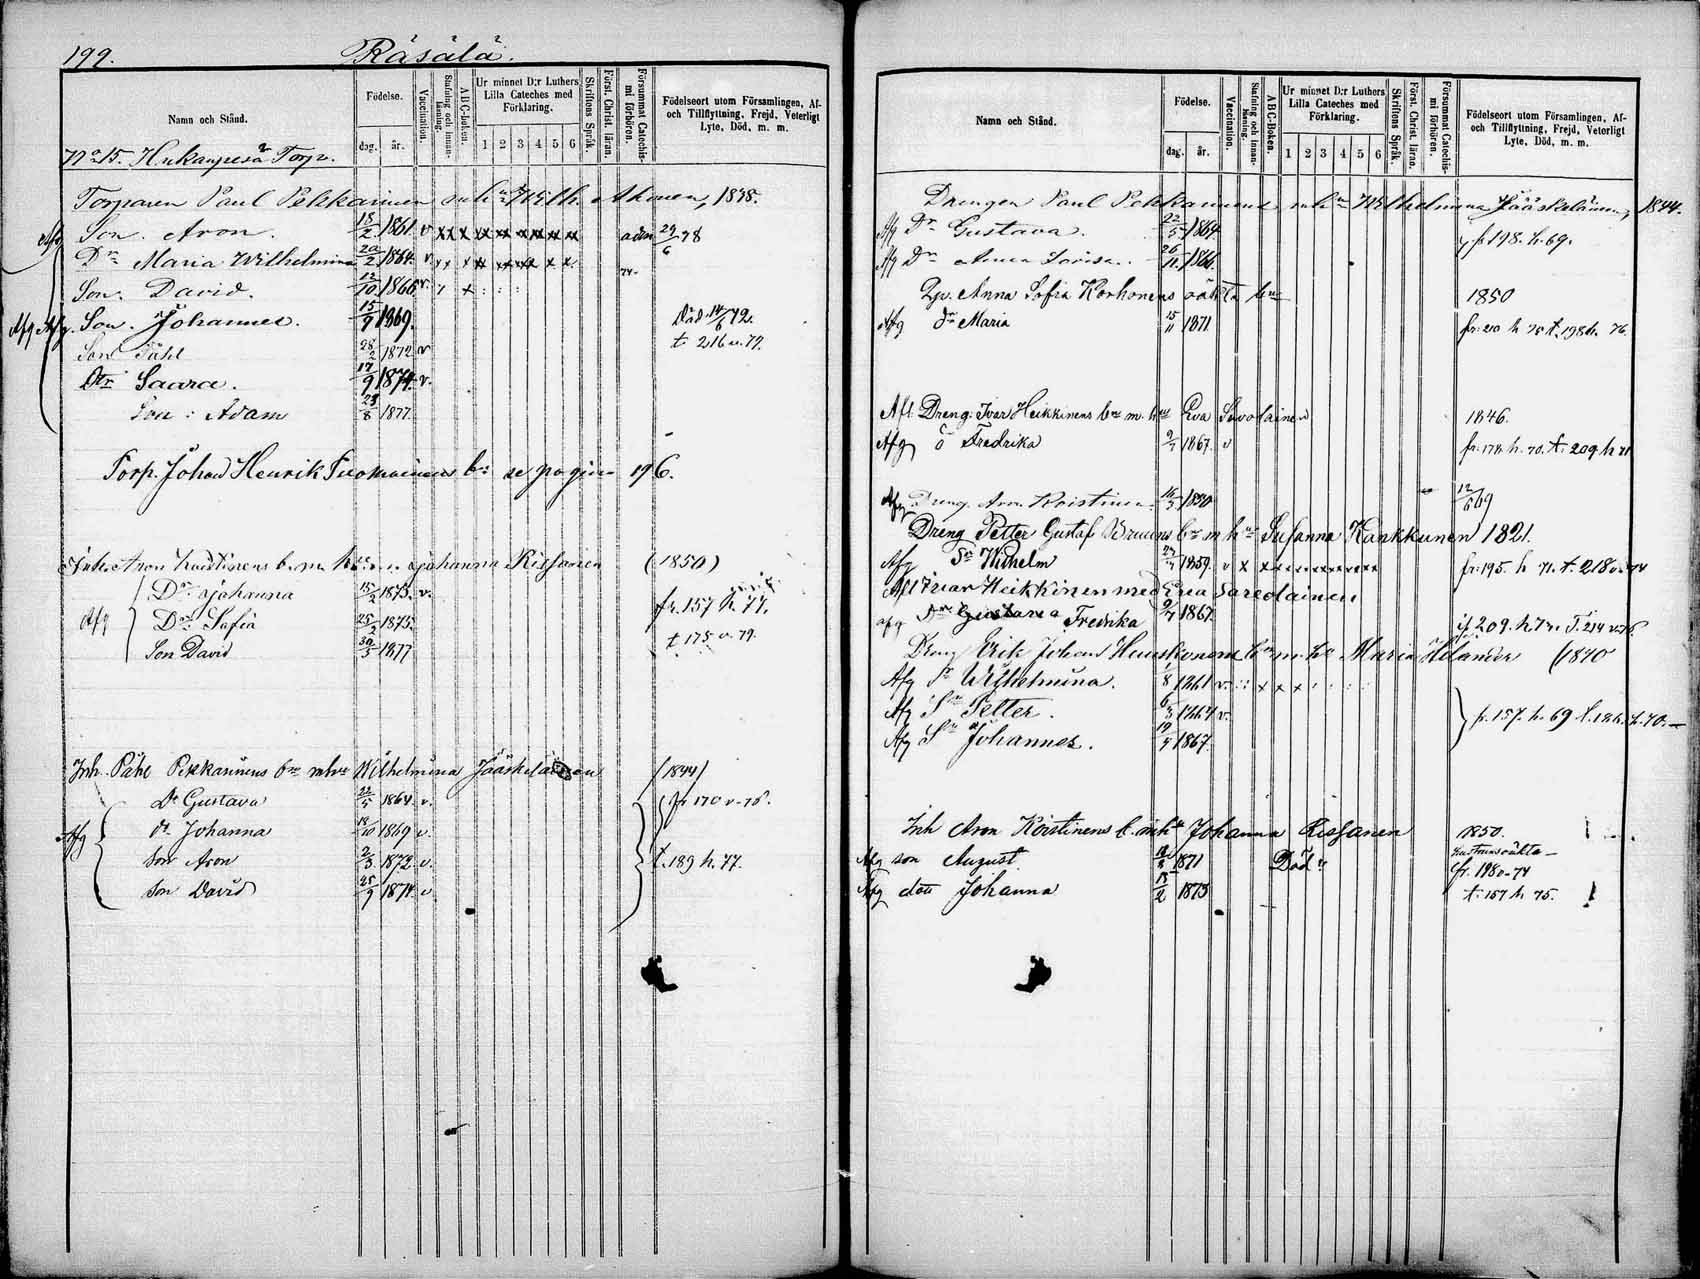 199. Räsälä.
Namn och Stånd.
Födelse.
dag. år.
Vaccination.
Stafning och innanläsning.
A B C-boken.
Ur minnet D:r Luthers Lilla Cateches med Förklaring.
1 2 3 4 5 6
Skriftens Språk.
Först. Christ. läran.
Försummat Catechismi förhören.
Födelseort utom Församlingen, Af- och Tillflyttning, Frejd, Veterligt Lyte, Död, m. m.
No 15. Hukanpesä Torp.
Torparen Paul Pekkarinen Wilh. Ahonen, 1838.
Afg Son. Aron. 18/2 1861 v 29/6 78
Dr Maria Wilhelmina 20/2 1864. v.
Son. David. 12/10 1866 v.
Afg Afg. Son. Johannes. 15/9 1869. Död 14/6 72.
Son Påhl 28/2 1872 v t 216 v. 79.
Dtr Saara. 17/9 1874. v.
Son: Adam 23/8 1877.
Torp. Johan Henrik Tuomainens bn se pagina 196.
Aron Koistinens b. m. h. Johanna Rissanen (1850)
Dr Johanna 15/2 1873. v. fr. 157 h. 77.
Afg Dr Sofia 25/2 1875. t 175 v. 79.
Son David 30/3 1877
Inh. Påhl Pekkarinens bn mhu Wilhelmina Jääskeläinen (1844)
Dr Gustava 22/5 1864. v. fr 170 v. 76.
Afg dr Johanna 18/10 1869 v.
Son Aron 2/3 1872 v. t. 189 h. 77.
Son David 25/9 1874 v
Namn och Stånd.
Födelse.
dag. år.
Vaccination.
Stafning och innanläsning.
A B C-Boken.
Ur minnet D:r Luthers Lilla Cateches med Förklaring.
1 2 3 4 5 6
Skriftens Språk.
Först. Christ. läran.
Försummat Catechismi förhören.
Födelseort utom Församlingen, Af- och Tillflyttning, Frejd, Veterligt Lyte, Död, m. m.
Drengen Paul Pekkarinens Wilhelmina Jääskeläinen, 1844.
Afg Dr Gustava. 22/5 1864 fr 198. h. 69.
Afg Dr Anna Lovisa. 26/11 1866.
Pp. Anna Sofia Korhonens oäkta bn 1850
Afg dr Maria 15/11 1871 fr: 210 h 75 t. 198 h. 76.
Afl. Dreng: Ivar Heikkinens bn m. hu Eva Savolainen 1846.
Afg d Fredrika 9/7 1867. v fr: 178. h. 70. t: 209 h 71
Afg Dreng. Aron Koistinen 16/3 1850 12/6 69
Dreng Petter Gustaf Bruuns bn m hu Susanna Kankkunen 1821.
Afg Sn Wilhelm 1859. v fr: 195. h 71. t. 218 v. 74
Afl Ivar Heikkinen med Eva Savolainen
afg Dr Gustava Fredrika 9/7 1867. if 209. h. 72. T. 214 v. 76.
Dreng Erik Johan Huuskonens bn m. hu Maria Hilander (1840
Afg Dr Wilhelmina. 1/8 1861 v.
Afg Sn Petter. 6/3 1864 v. fr. 157. h. 69 t. 186. h. 70.
Afg Sn Johannes. 1867.
Inh Aron Koistinens b. mhu Johanna Rissanen 1850.
Afg son August 1871 Död hustruns oäkta
fr. 198 v. 74
Afg dotr Johanna 15/2 1873 t. 157 h. 75.